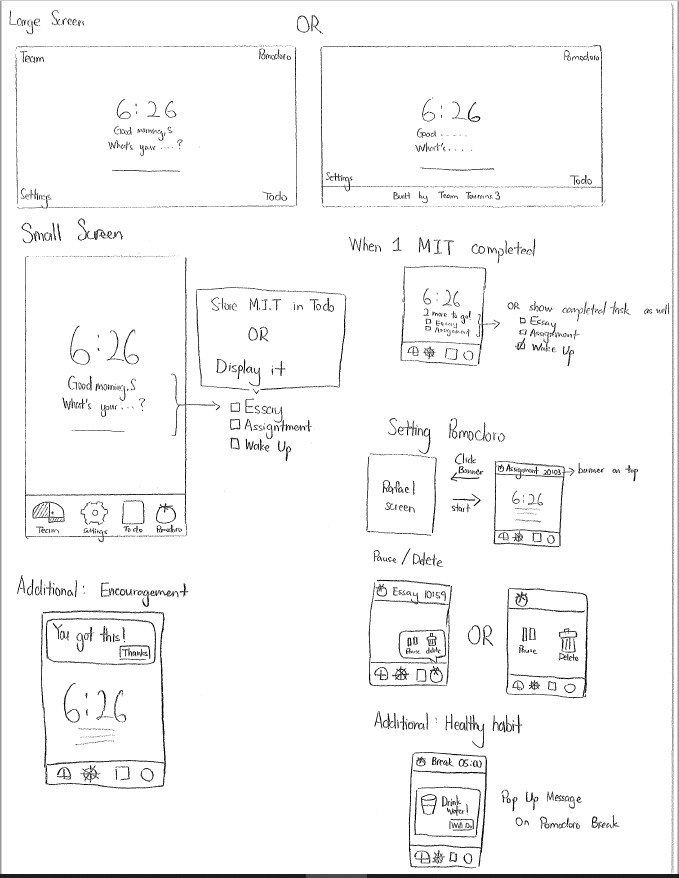 Large Screen
OR
Team
Pomodoro
6:26
Good morning, S
What's your ....?
Settings
Todo
Pomodoro
6:26
Good .....
What's....
Settings
Todo
Built by Team Tourins 3
Small Screen
6:26
Good morning, S
What's your ...?
Team
Settings
To do
Pomodoro
Store M.I.T in Todo
OR
Display it
Essay
Assigntment
Wake Up
When 1 MIT completed
6:26
2 more to go!
Essay
Assignment
OR show completed task as well
Essay
Assignment
Wake Up
Setting Pomodoro
Rafael
screen
Click
Banner
start
Assignment 20:03
6:26
banner on top
Pause / Delete
Essay 10:59
Pause delete
OR
Pause
Delete
Additional: Encouragement
You got this!
Thanks
6:26
Additional: Healthy habit
Break 05:00
Drink
Water!
Will Do
Pop Up Message
On Pomodoro Break